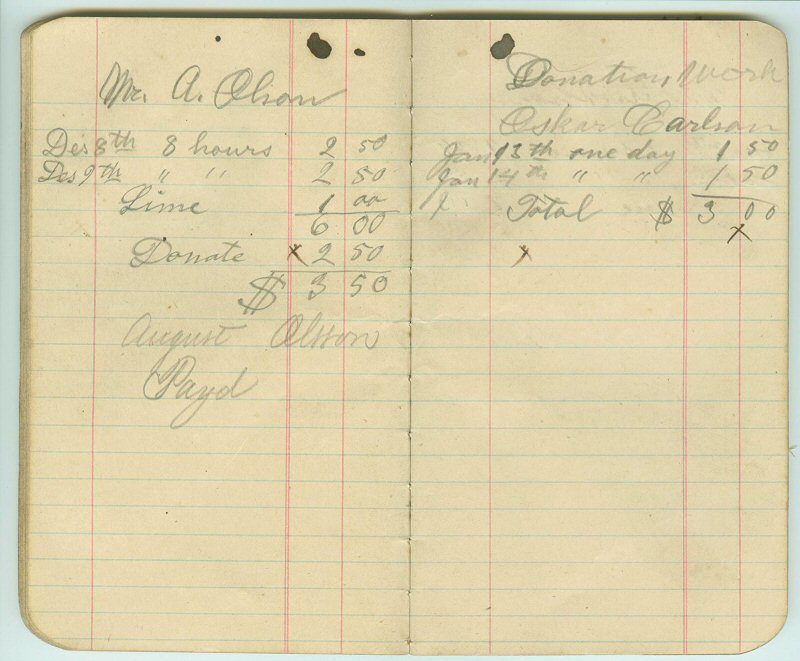 Mr. A. Olson
Des 8th 8 hours 2 50
Des 9th " " 2 50
Lime 1 00
6 00
Donate x 2 50
$ 3 50
August Olsson
Payd
Donation Work
Oskar Carlson
Jan 13th one day 1 50
Jan 14th " " 1 50
Total $ 3 00
x x